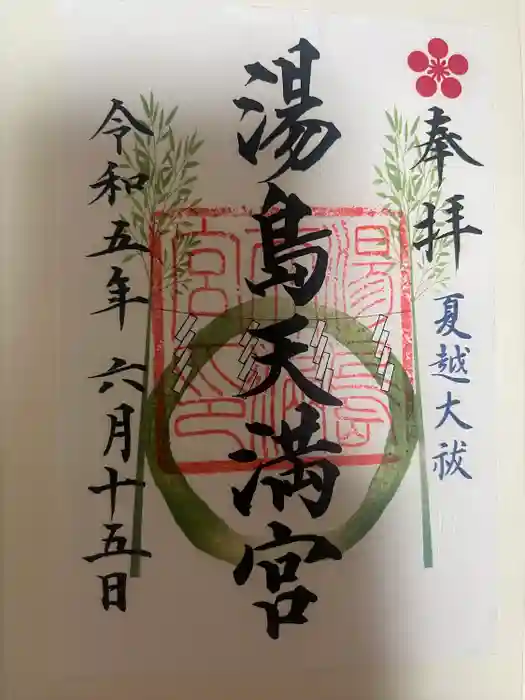 奉拝
夏越大祓
湯島天満宮
令和五年 六月十五日